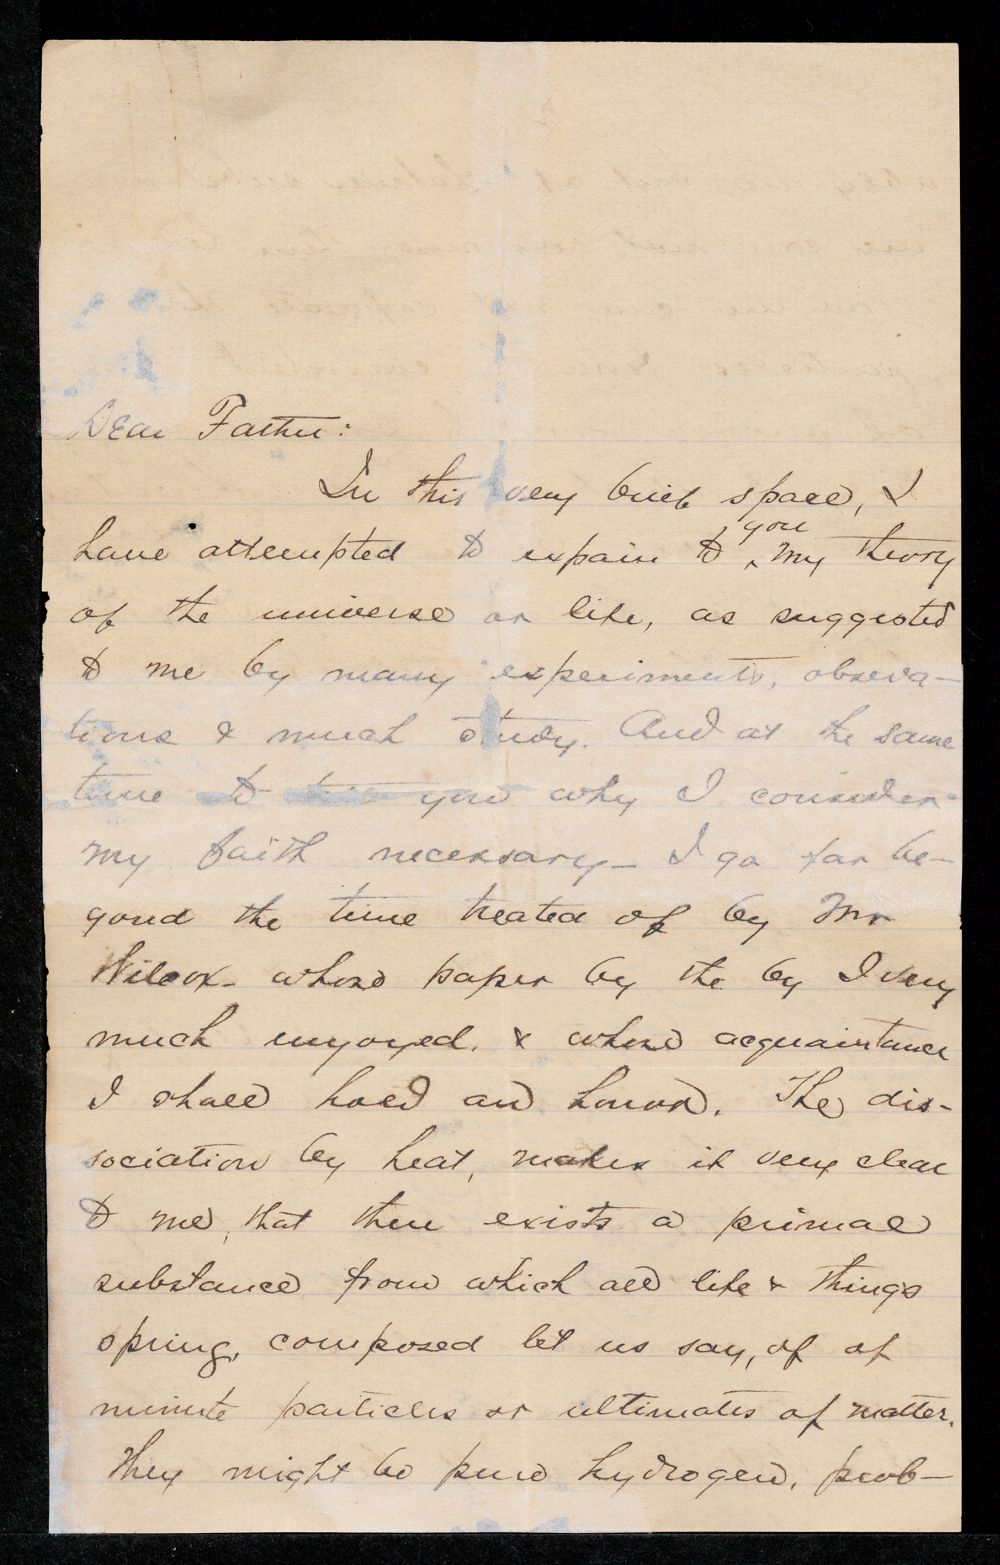 Dear Father:
In this very brief space, I
have attempted to expain to you my theory
of the universe or life, as suggested
to me by many experiments, observa-
tions & much study. And at the same
time to you why I consider
my faith necessary - I go far be-
yond the time treated of by Mr
Wilcox - whose paper by the by I very
much enjoyed. & whose acquaintance
I shall hold an honor. The dis-
sociation by heat, makes it very clear
to me, that there exists a primal
substance from which all life & things
spring, composed let us say, of of
minute particles or ultimates of matter.
They might be pure hydrogen, prob-